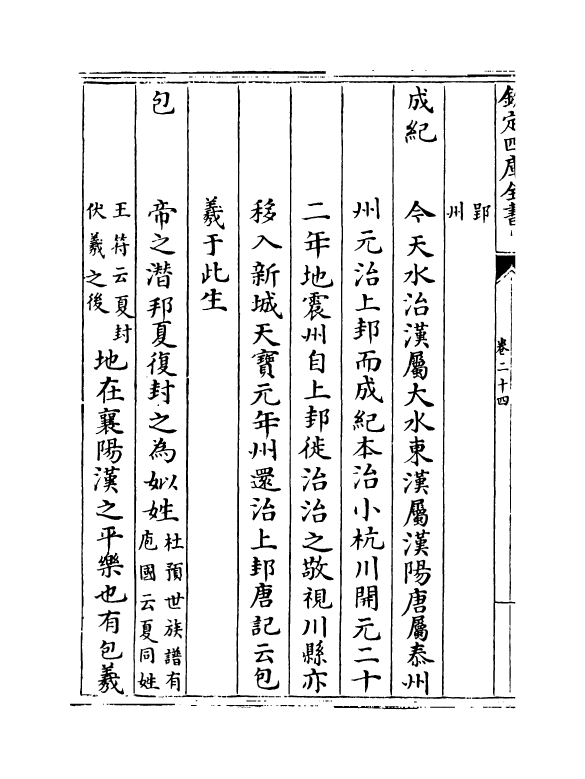 欽定四庫全書
卷二十四
郢
州
成紀
今天水治漢屬大水東漢屬漢陽唐屬泰州
州元治上邽而成紀本治小杭川開元二十
二年地震州自上邽徙治治之敬視川縣亦
移入新城天寳元年州還治上邽唐記云包
羲于此生
包
帝之潛邦夏復封之為姒姓杜預世族譜有
庖國云夏同姓
王符云夏封
伏羲之後
地在襄陽漢之平樂也有包羲